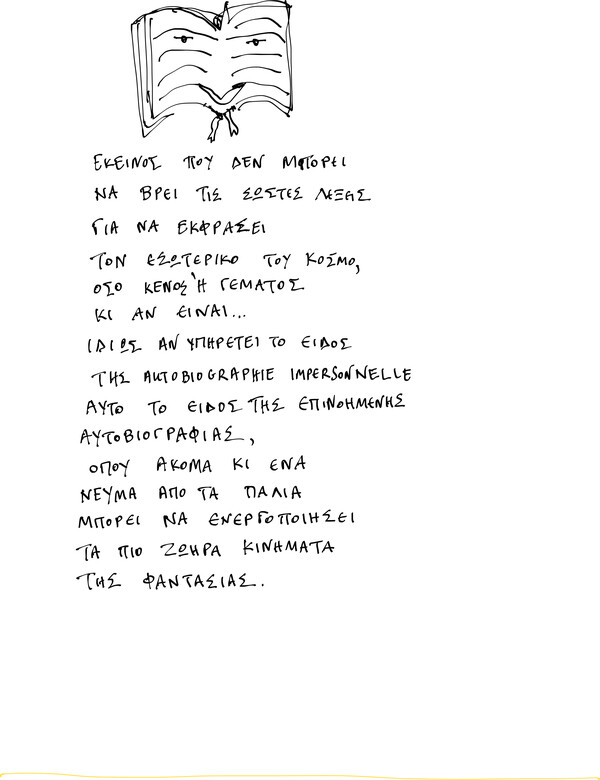 ΕΚΕΙΝΟΣ ΠΟΥ ΔΕΝ ΜΠΟΡΕΙ
ΝΑ ΒΡΕΙ ΤΙΣ ΣΩΣΤΕΣ ΛΕΞΕΙΣ
ΓΙΑ ΝΑ ΕΚΦΡΑΣΕΙ
ΤΟΝ ΕΣΩΤΕΡΙΚΟ ΤΟΥ ΚΟΣΜΟ,
ΟΣΟ ΚΕΝΟΣ Ή ΓΕΜΑΤΟΣ
ΚΙ ΑΝ ΕΙΝΑΙ...
ΙΔΙΩΣ ΑΝ ΥΠΗΡΕΤΕΙ ΤΟ ΕΙΔΟΣ
ΤΗΣ AUTOBIOGRAPHIE IMPERSONNELLE
ΑΥΤΟ ΤΟ ΕΙΔΟΣ ΤΗΣ ΕΠΙΝΟΗΜΕΝΗΣ
ΑΥΤΟΒΙΟΓΡΑΦΙΑΣ,
ΟΠΟΥ ΑΚΟΜΑ ΚΙ ΕΝΑ
ΝΕΥΜΑ ΑΠΟ ΤΑ ΠΑΛΙΑ
ΜΠΟΡΕΙ ΝΑ ΕΝΕΡΓΟΠΟΙΗΣΕΙ
ΤΑ ΠΙΟ ΖΩΗΡΑ ΚΙΝΗΜΑΤΑ
ΤΗΣ ΦΑΝΤΑΣΙΑΣ.